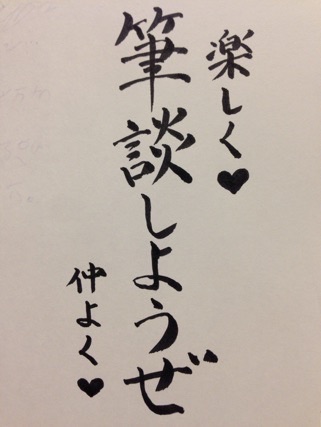 楽しく♥
筆談しようぜ
仲よく♥